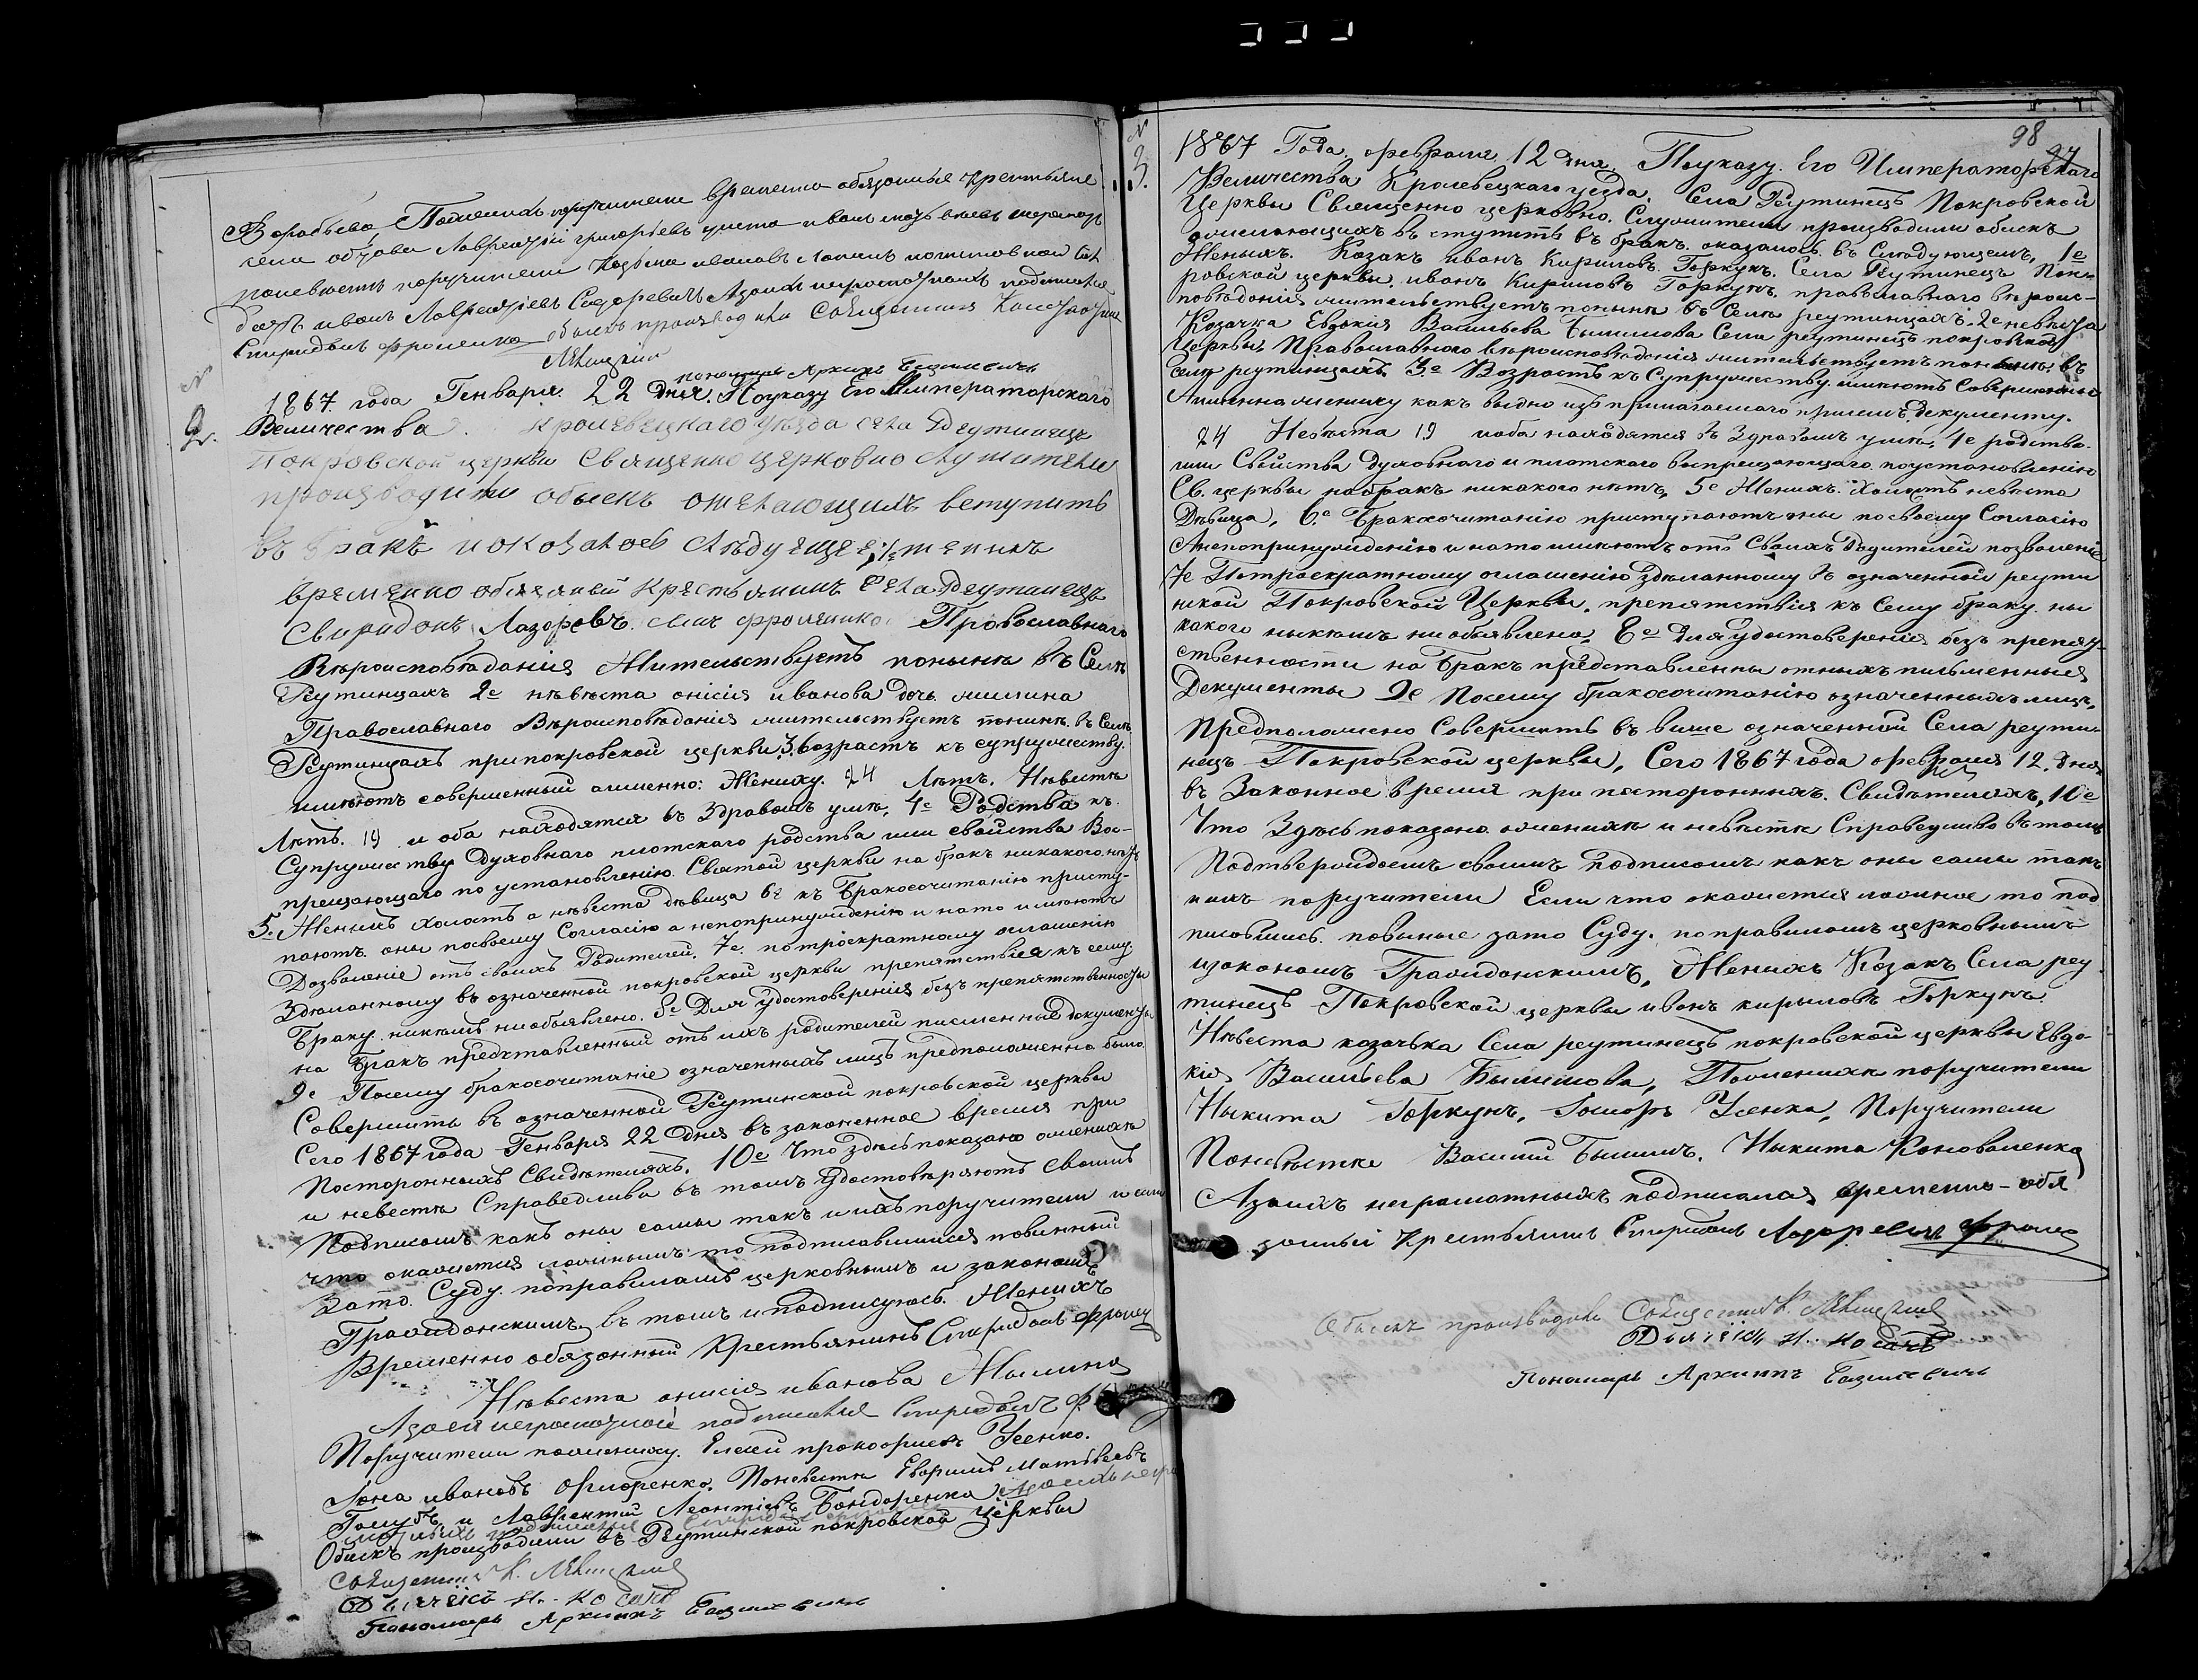 Воробьева Пажениха поручители временно обязанные крестьяне
села
поневесте поручители Козьма ивановъ
иванъ Лаврентіевъ
Спиридонъ Фроменко обыскъ производили Священникъ
Левицкій
пономарь Архипъ Базилевичъ
№
2.
1867 года Генваря 22 дня. Поуказу Его Императорскаго
Величества Кролевецкаго уезда села Реутинецъ
Покровской церкви Священно церковно служители
производили обыскъ ожелающихъ вступить
въ бракъ и оказалось следущее: 1е женихъ
временно обязаный Крестьянинъ села Реутинецъ
Свиридонъ Лазоревъ сынъ Фроменко Православнаго
Вероисповеданія Жительствуетъ поныне въ Селе
Реутинцахъ 2е невеста онисія иванова дочь милина
Православного Вероисповеданія жительствуетъ понине въ селе
Реутинцахъ припокровской церкви 3. возрастъ къ супружеству
имеютъ совершенный аименно: Жениху. 24 Летъ. Невесте
Летъ. 19 и оба находятся въ Здравомъ уме, 4е Родства къ
Супружеству Духовнаго плотскаго родства или свойства Вос-
прещающаго по установленію Святой церкви на бракъ никакого нетъ
5. Женихъ холостъ а невеста девица 6е къ Бракосочитанію присту-
паютъ оны посвоему Согласію а непопринужденію и нато имеютъ
Дозволеніе отъ своихъ Родителей. 7е. потроекратному оглашенію
Зделанному въ означенной покровской церкви препятствія къ сему
Браку никемъ необъявлено. 8е Для Удостоверенія безъ препятственности
на Бракъ представленный отъ ихъ родителей писменные документы
9е Посему бракосочитаніе означенныхъ лицъ предположенно было
Совершить въ означенной Реутинской покровской церкви
Сего 1867 года Генваря 22 дня въ законенное время при
Посторонныхъ Свидетеляхъ. 10е Что здесь показано оженихе
и невесте Справедливо въ томъ Удостоверяютъ своимъ
Подписомъ какъ оны самы такъ и ихъ поручители и если
что окажется ложнымъ то подписавшися повинный
Зато Суду поправиламъ церковнымъ и закономъ
Гражданскимъ въ томъ и подписуюсь. Женихъ
Временно обязонный Крестьянинъ Спиридонъ Фромен
Невеста онисія иванова Милина
Азаей неграмотной подписался Спиридонъ
Поручители пожениху. Елисей прокофиевъ Усенко.
Іона ивановъ Поневесте Ефримъ Матвеевъ
Голубъ и Лаврентий Леонтіевъ Бондоренко
Обыскъ производили въ Реутинской покровской церкви
Священникъ К. Левицкій
Дьячекъ Н. Косачъ
Пономарь Архипъ Базилевичъ
98
97
№
3.
1867 Года февраля 12 дня Поуказу Его Императорскаго
Величества Кролевецкаго уезда. Села Реутинецъ Покровской
Церквы Священно церковно. Служители производили обыскъ
ожелающихъ въ ступить въ бракъ оказалось въ Следующемъ. 1е
Женихъ. Козакъ иванъ Кириловъ Горкунъ. Села Реутинецъ Пок-
ровской церквы. иванъ Кириловъ Горкунъ. православнаго вероис-
поведанія жительствуетъ понынь въ Селе реутинцахъ. 2е невеста
Козачка Евдокія Васильева Былимова Села реутинецъ покровской
Церквы Православного вероисповеданія жительствуетъ поныне въ
Селе реутинцахъ. 3е Возрастъ къ Супружеству имеютъ Совершенный
Аименна жениху какъ выдно изъ прилагаемаго присемъ декументу.
24 Невеста 19 иоба находятся въ Здравомъ уме. 4е родства
или Свойства духовного и плотского воспрещающаго поустановленію
Св. церквы набракъ никакого нетъ, 5е Женихъ Холостъ невеста
Девица, 6е Бракосочитанію приступаютъ оны посвоему Согласію
Анепопринуждению и нато имеютъ отъ Своихъ Родителей позволеніе
7е Потроекратному оглашенію зделанному въ означенной реути
нской Покровской Церквы. препятствія къ Сему браку ны
какого ныкемъ ниобъявлено, 8е Для удостоверенія безъ препят-
ственности на Бракъ представленны отныхъ письменныя
Декументы 9е Посему бракосочитанію означенныхъ лицъ,
Предположено Совершить въ више означенной Села реути-
нецъ Покровской церквы, Сего 1867 года февраля 12. дня
въ Законное время при постороннихъ. Свидетеляхъ, 10е
Что Здесь показано. ожених и невесте Справедливо въ томъ
Подтверждаемъ своимъ подписомъ какъ оны самы такъ
ихъ поручители Если что окажется ложное то под
писовшись. повиные зато Суду. поправиломъ церковнымъ
изакономъ Гражданскимъ, Женихъ Козакъ Села реу
тинецъ Покровской церквы иванъ кирыловъ Горкунъ
Невеста козачька Села реутинецъ покровской церквы Евдо-
кія Васильева Былимова, Пожениха поручители
Ныкита Горкунъ, Усенко, Поручители
Поневестке Василий Былимъ. Ныкита Коноваленко
Азаихъ неграмотныхъ подписался временно-обя
занный Крестьянинъ Спиридонъ Лазоревъ Фромен
Обыскъ производилъ Священникъ К. Левицкій
Дьячекъ Н. Косачъ
Пономарь Архипъ Базилевичъ